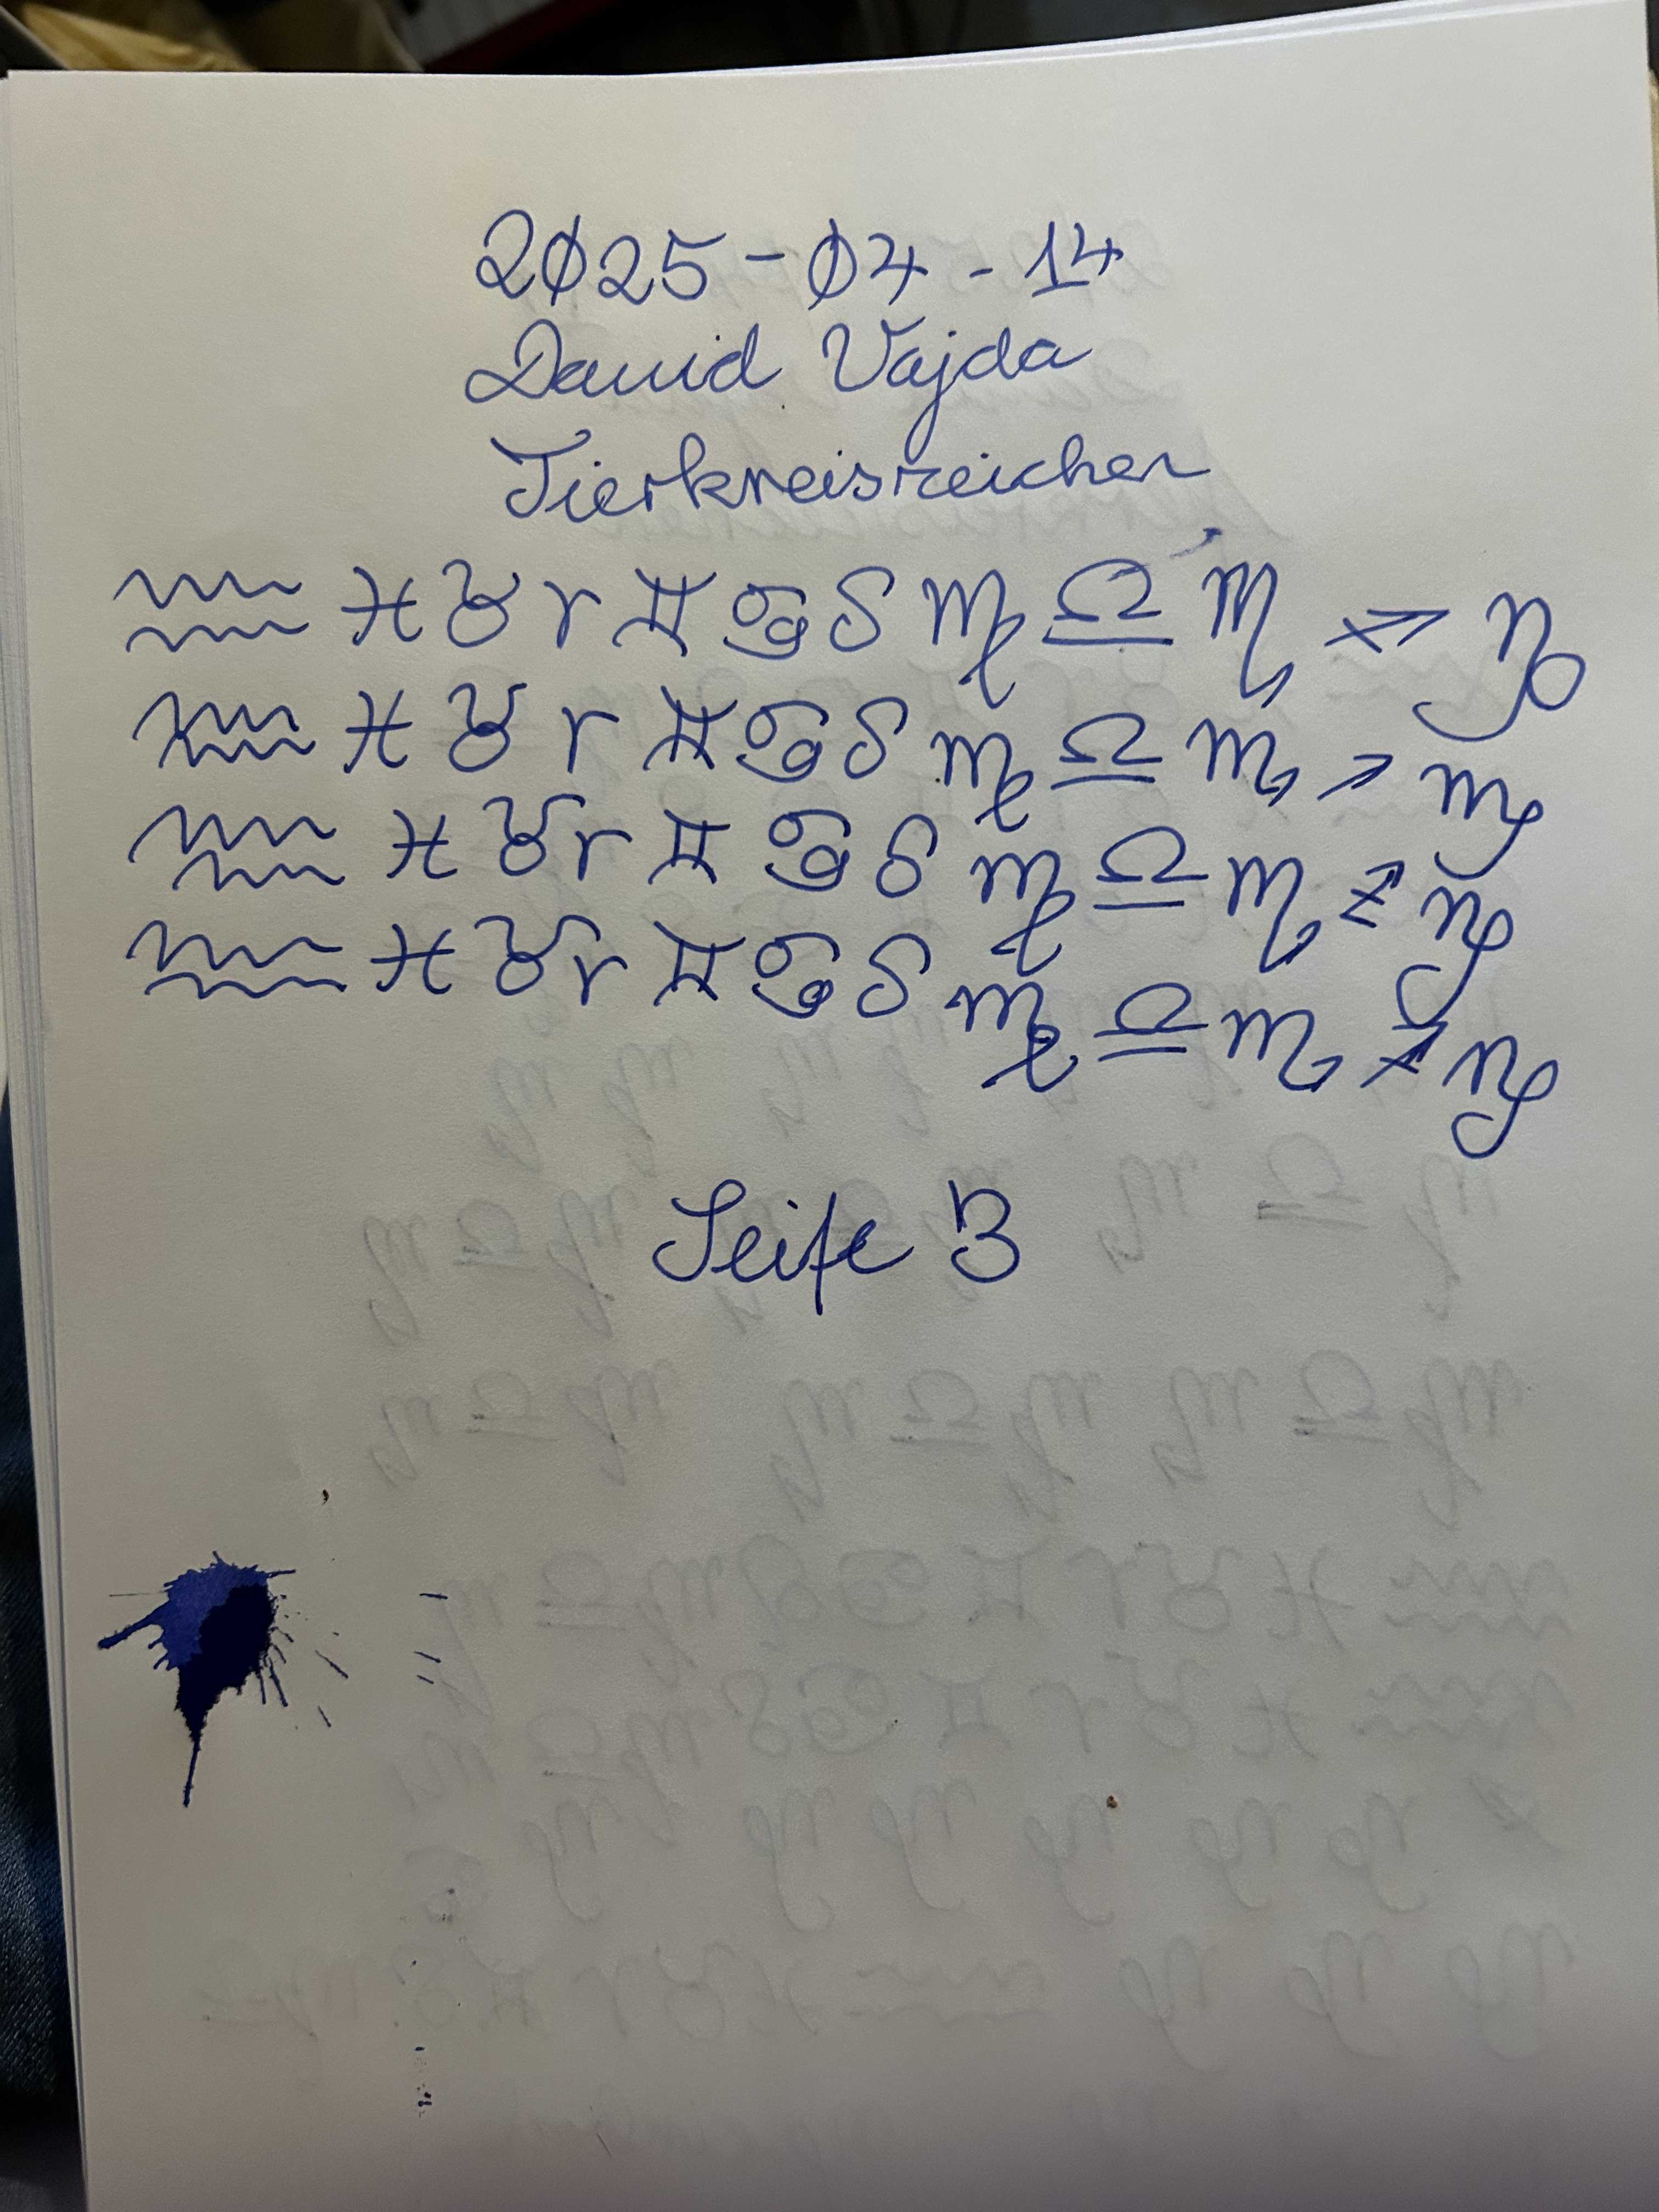 2025-04-14
David Vajda
Tierkreiszeichen
♒ ♓ ♉ ♈ ♊ ♋ ♌ ♍ ♎ ♏ ♐ ♑
♒ ♓ ♉ ♈ ♊ ♋ ♌ ♍ ♎ ♏ ♐ ♑
♒ ♓ ♉ ♈ ♊ ♋ ♌ ♍ ♎ ♏ ♐ ♑
♒ ♓ ♉ ♈ ♊ ♋ ♌ ♍ ♎ ♏ ♐ ♑
Seite 3